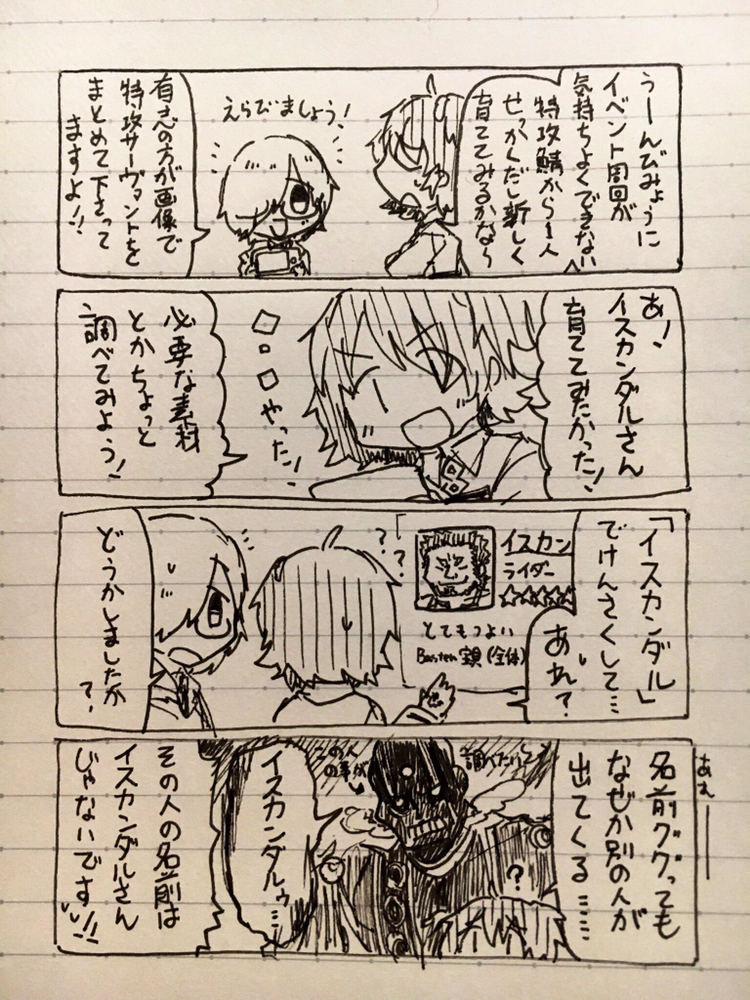 うーんびみょうに
イベント周回が
気持ちよくできない
特攻鯖から1人
せっかくだし新しく
育ててみるかなら
えらびましょう!
有志の方が画像で
特攻サーヴァントを
まとめて下さって
ますよ!!
あ!
イスカンダルさん
育ててみたかった!
やった!
必要な素材
とかちょっと
調べてみよう!
「イスカンダル」
でけんさくして…
あれ?
イスカン
ライダー
☆☆☆☆☆
とてもつよい
Buster宝具(全体)
??
どうかしましたか
?
あれ――
名前ググっても
なぜか別の人が
出てくる……
調べたいって
?
この人
の事が
イスカンダルゥ…
その人の名前は
イスカンダルさん
じゃないです!!